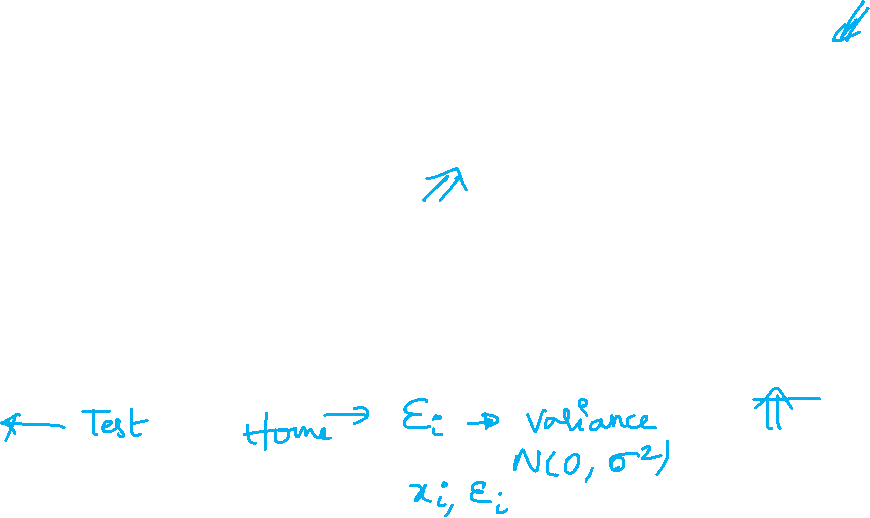 ← Test Home → Ɛi → Variance
N(0, σ²)
xi, Ɛi